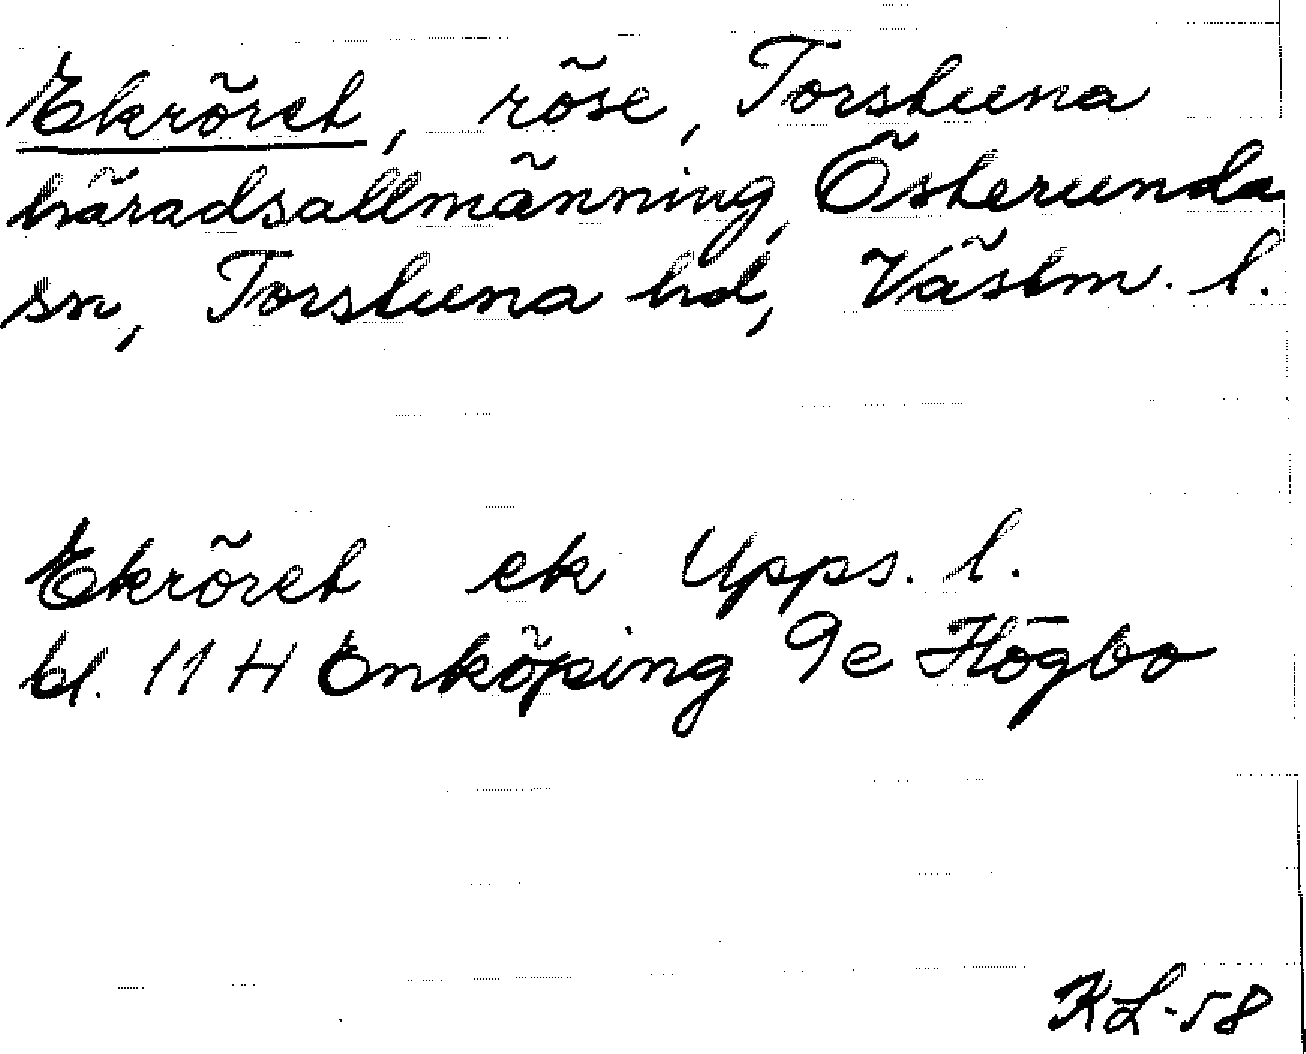 Ekröret, röse, Torstuna
häradsallmänning, Österunda
sn, Torstuna hd, Västm. l.
Ekröret ek Upps. l.
bl. 11 H Enköping 9 e Högbo
KL-58